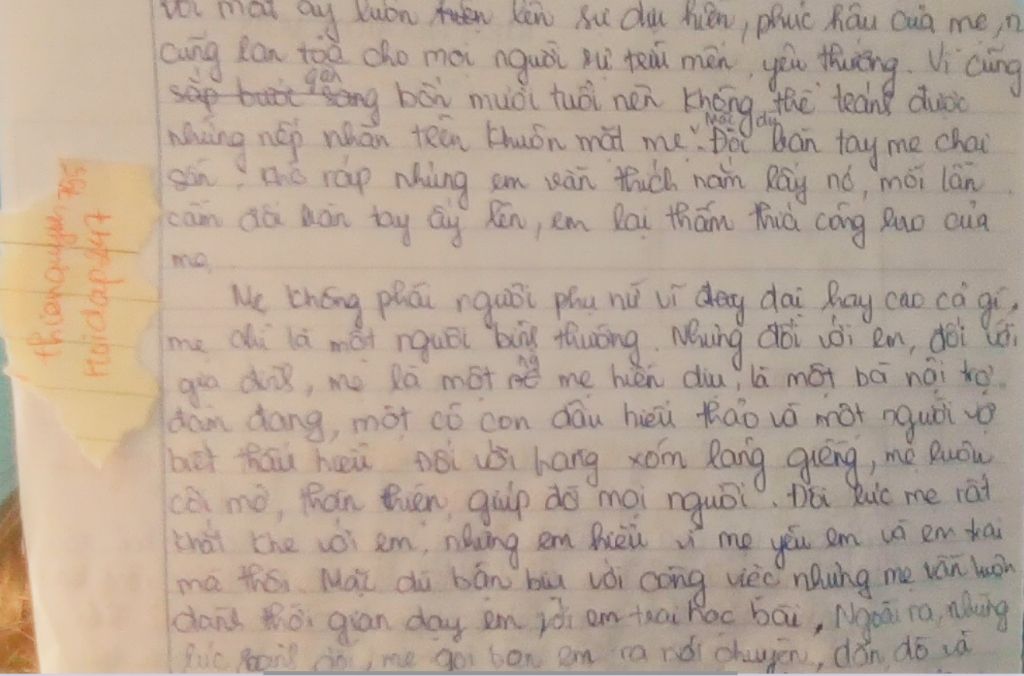 mắt ấy luôn hiện lên sự dịu hiền, phúc hậu của mẹ,
cũng lan toả cho mọi người sự trìu mến, yêu thương. Vì cũng
sắp bước sang gần bốn mươi tuổi nên không thể tránh được
những nếp nhăn trên khuôn mặt mẹ. Mặc dù Đôi bàn tay mẹ chai
sần, thô ráp nhưng em vẫn thích nắm lấy nó, mỗi lần
cầm đôi bàn tay ấy lên, em lại thấm thía công lao của
mẹ.
Mẹ không phải người phụ nữ vĩ đại hay cao cả gì,
mẹ chỉ là một người bình thường. Nhưng đối với em, đối với
gia đình, mẹ là một ng mẹ hiền dịu, là một bà nội trợ
đảm đang, một cô con dâu hiếu thảo và một người vợ
biết thấu hiểu. Đối với hàng xóm láng giềng, mẹ luôn
cởi mở, thân thiện, giúp đỡ mọi người. Đôi lúc mẹ rất
khắt khe với em, nhưng em hiểu vì mẹ yêu em và em trai
mà thôi. Mặc dù bận bịu với công việc nhưng mẹ vẫn luôn
dành thời gian dạy em với em trai học bài, Ngoài ra, những
lúc rảnh rỗi, mẹ gọi bọn em ra nói chuyện, dặn dò và
thienquynh785
Hoidap247